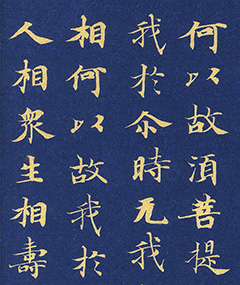 何以故須菩提
我於尒時无我
相何以故我於
人相衆生相壽